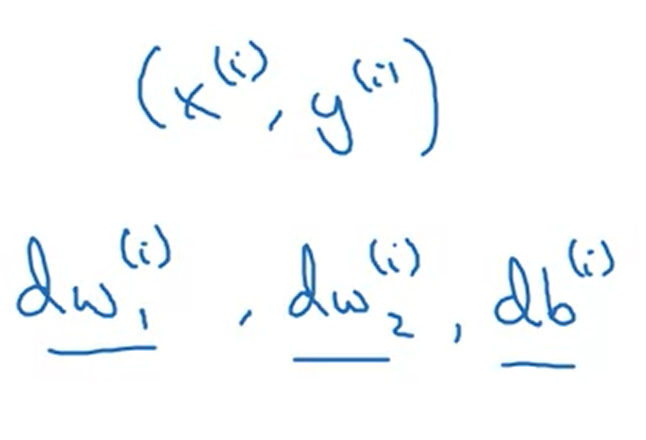 (x^(i), y^(i))
dw_1^(i), dw_2^(i), db^(i)